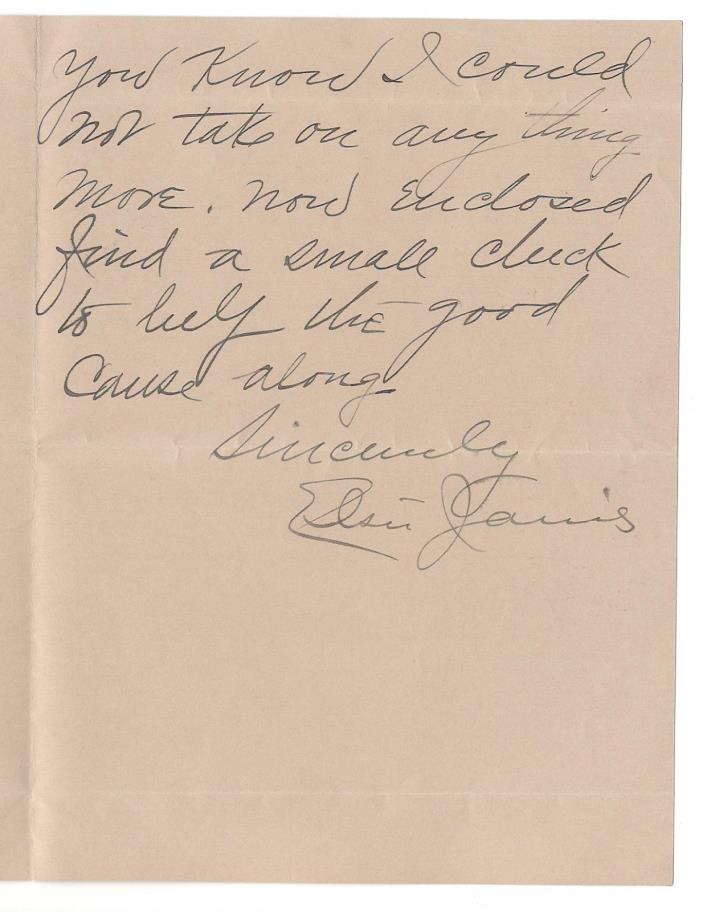 you know I could
not take on any thing
more. now enclosed
find a small check
to help the good
Cause along
Sincerely
Elsie Janis